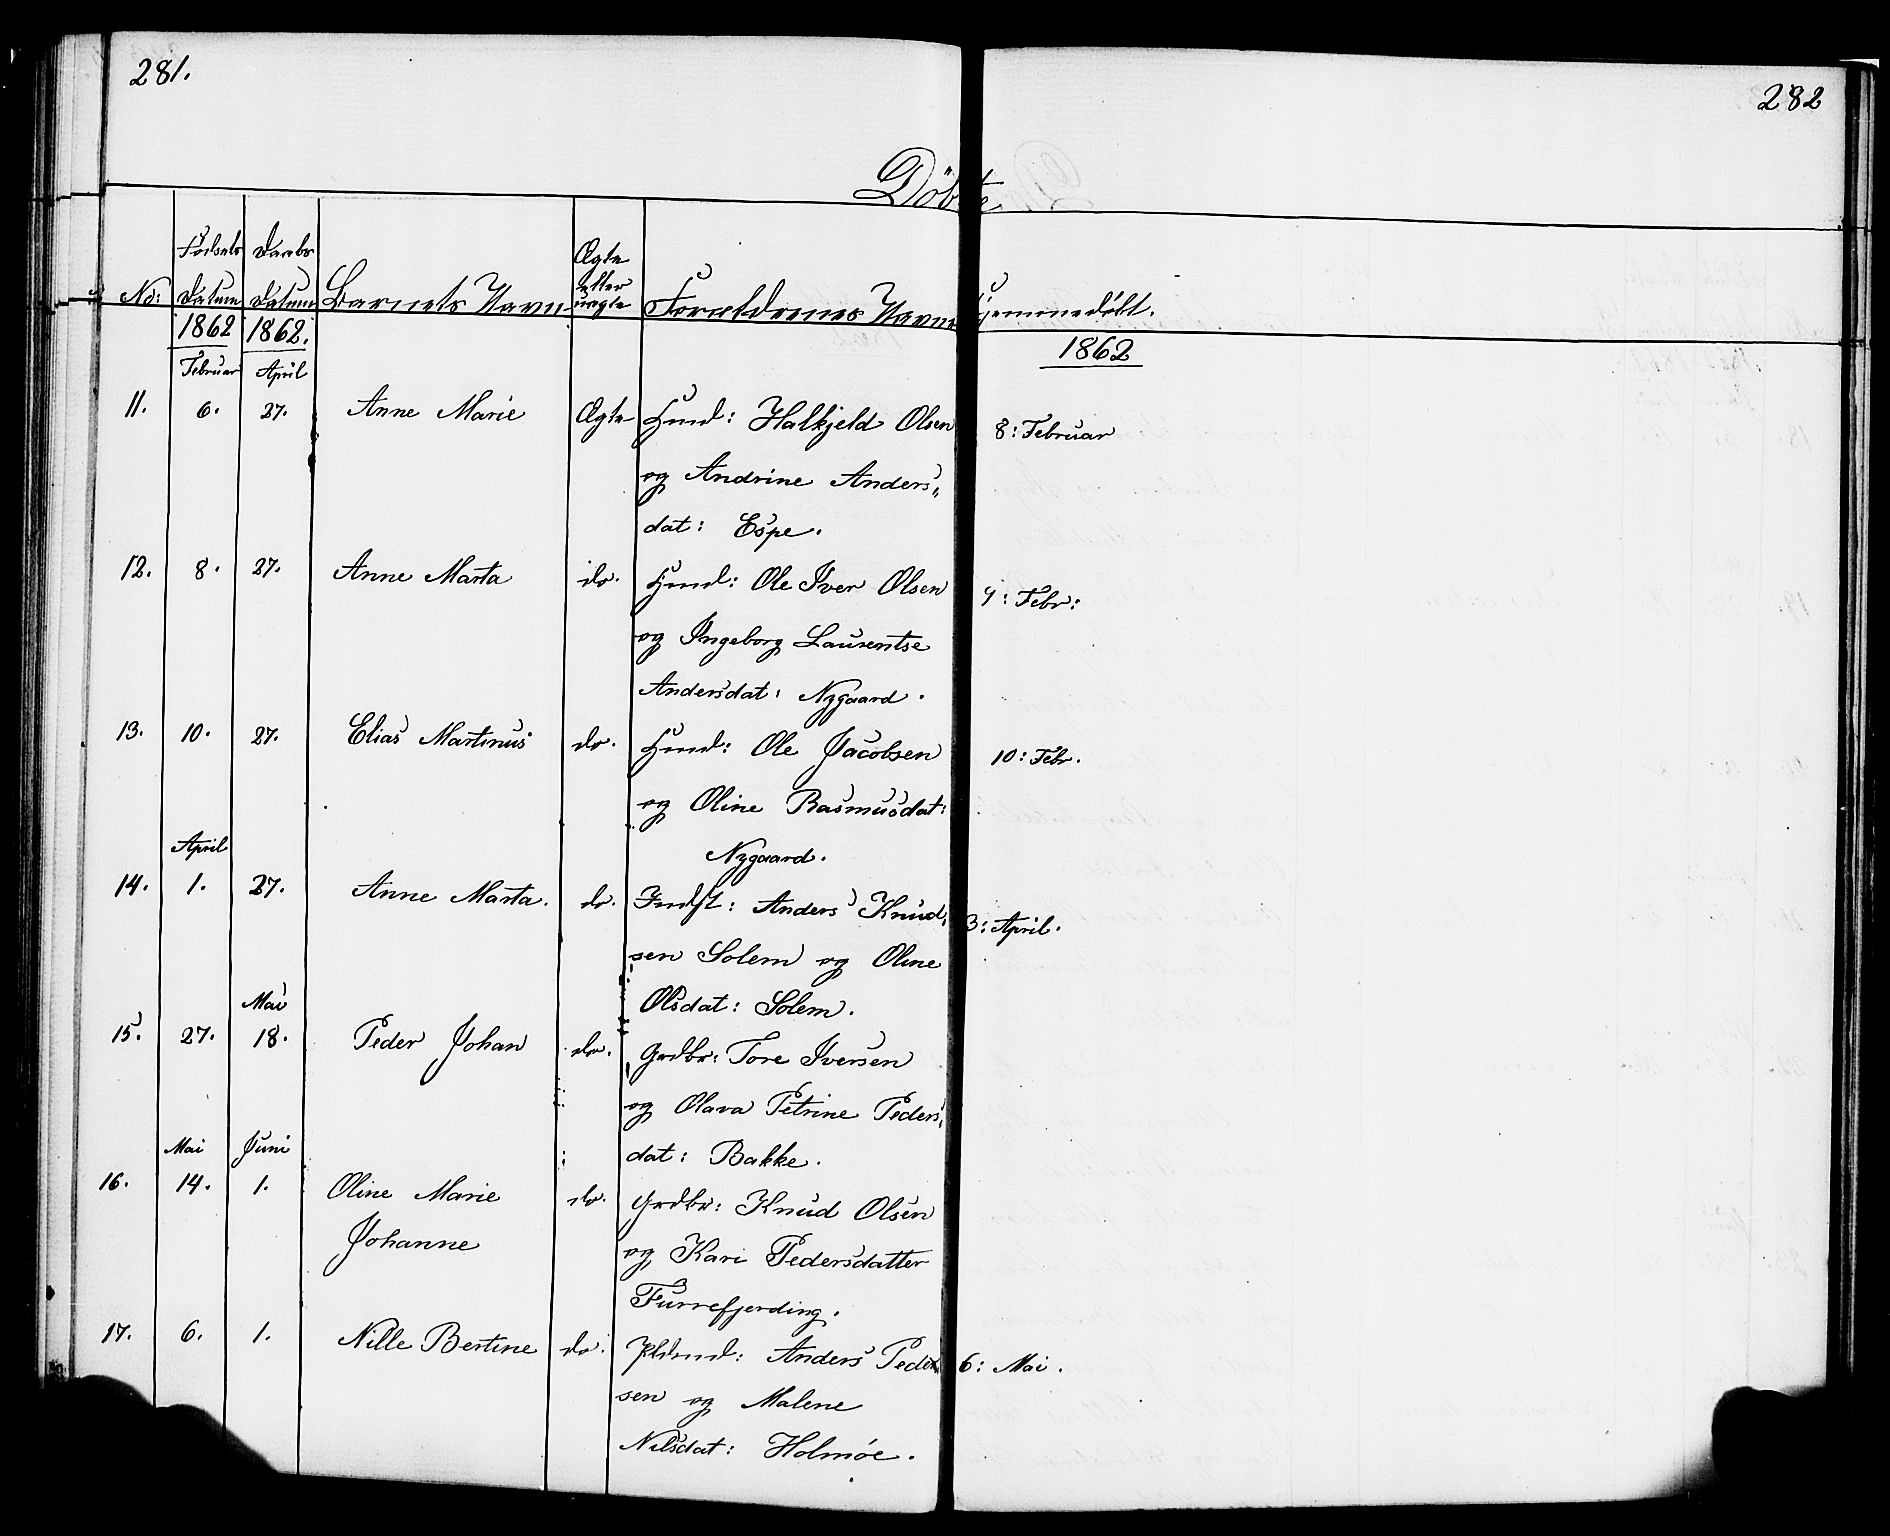 281.
282
Döbte
No: Fødsels Datum Daabs Datum Barnets Navn Ægte eller uægte Forældrenes Navne Hjemmedöbt.
1862 1862. 1862
Februar April
11. 6. 27. Anne Marie Ægte Hmd: Halkjeld Olsen 8: Februar
og Andrine Anders„
dat: Espe.
12. 8. 27. Anne Marta do. Hmd: Ole Iver Olsen 9: Febr:
og Ingeborg Laurentse
Andersdat: Nygaard.
13. 10. 27. Elias Martinus do. Hmd: Ole Jacobsen 10: Febr.
og Oline Rasmusdat:
April Nygaard.
14. 1. 27. Anne Marta. do. Indst: Anders Knud„ 3: April.
sen Solem og Oline
Mai Olsdat: Solem.
15. 27. 18. Peder Johan do. Grdbr: Tore Iversen
og Olava Petrine Peders„
Mai Juni dat: Bakke.
16. 14. 1. Oline Marie do. Grdbr: Knud Olsen
Johanne og Kari Pedersdatter
Furrefjerding.
17. 6. 1. Nille Bertine do. Anders Peder„ 6: Mai.
sen og Malene
Nilsdat: Holmøe.